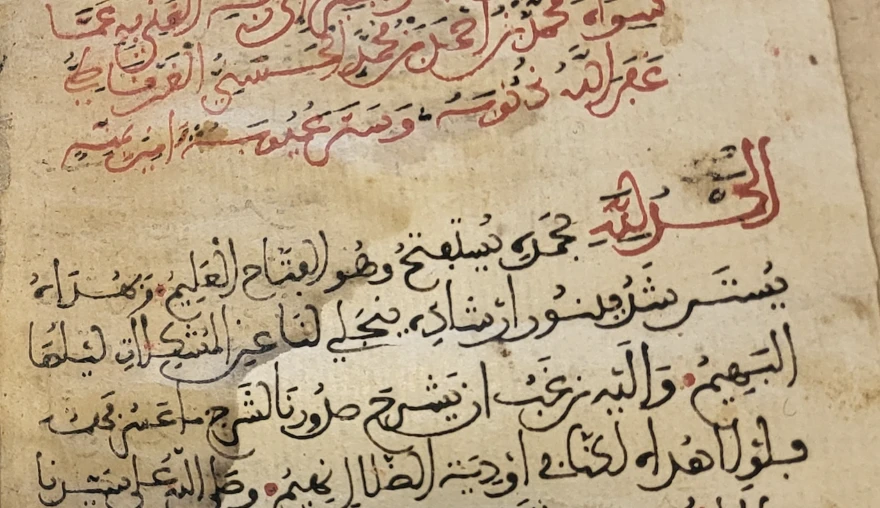 سواه محمد بن احمد بن محمد الحسني الغرناطي
غفر الله ذنوبه وستر عيوبه امين
الحمد لله بحمده يستفتح وهو الفتاح العليم وبهداه
يسترشد وبنور ارشاده ينجلي لنا عن المشكلات ليلها
البهيم واليه نرغب ان يشرح صدورنا لشرح ما عسر فهمه
فلولا هداه لكنا في اودية الضلال نهيم وصلى الله على سيدنا